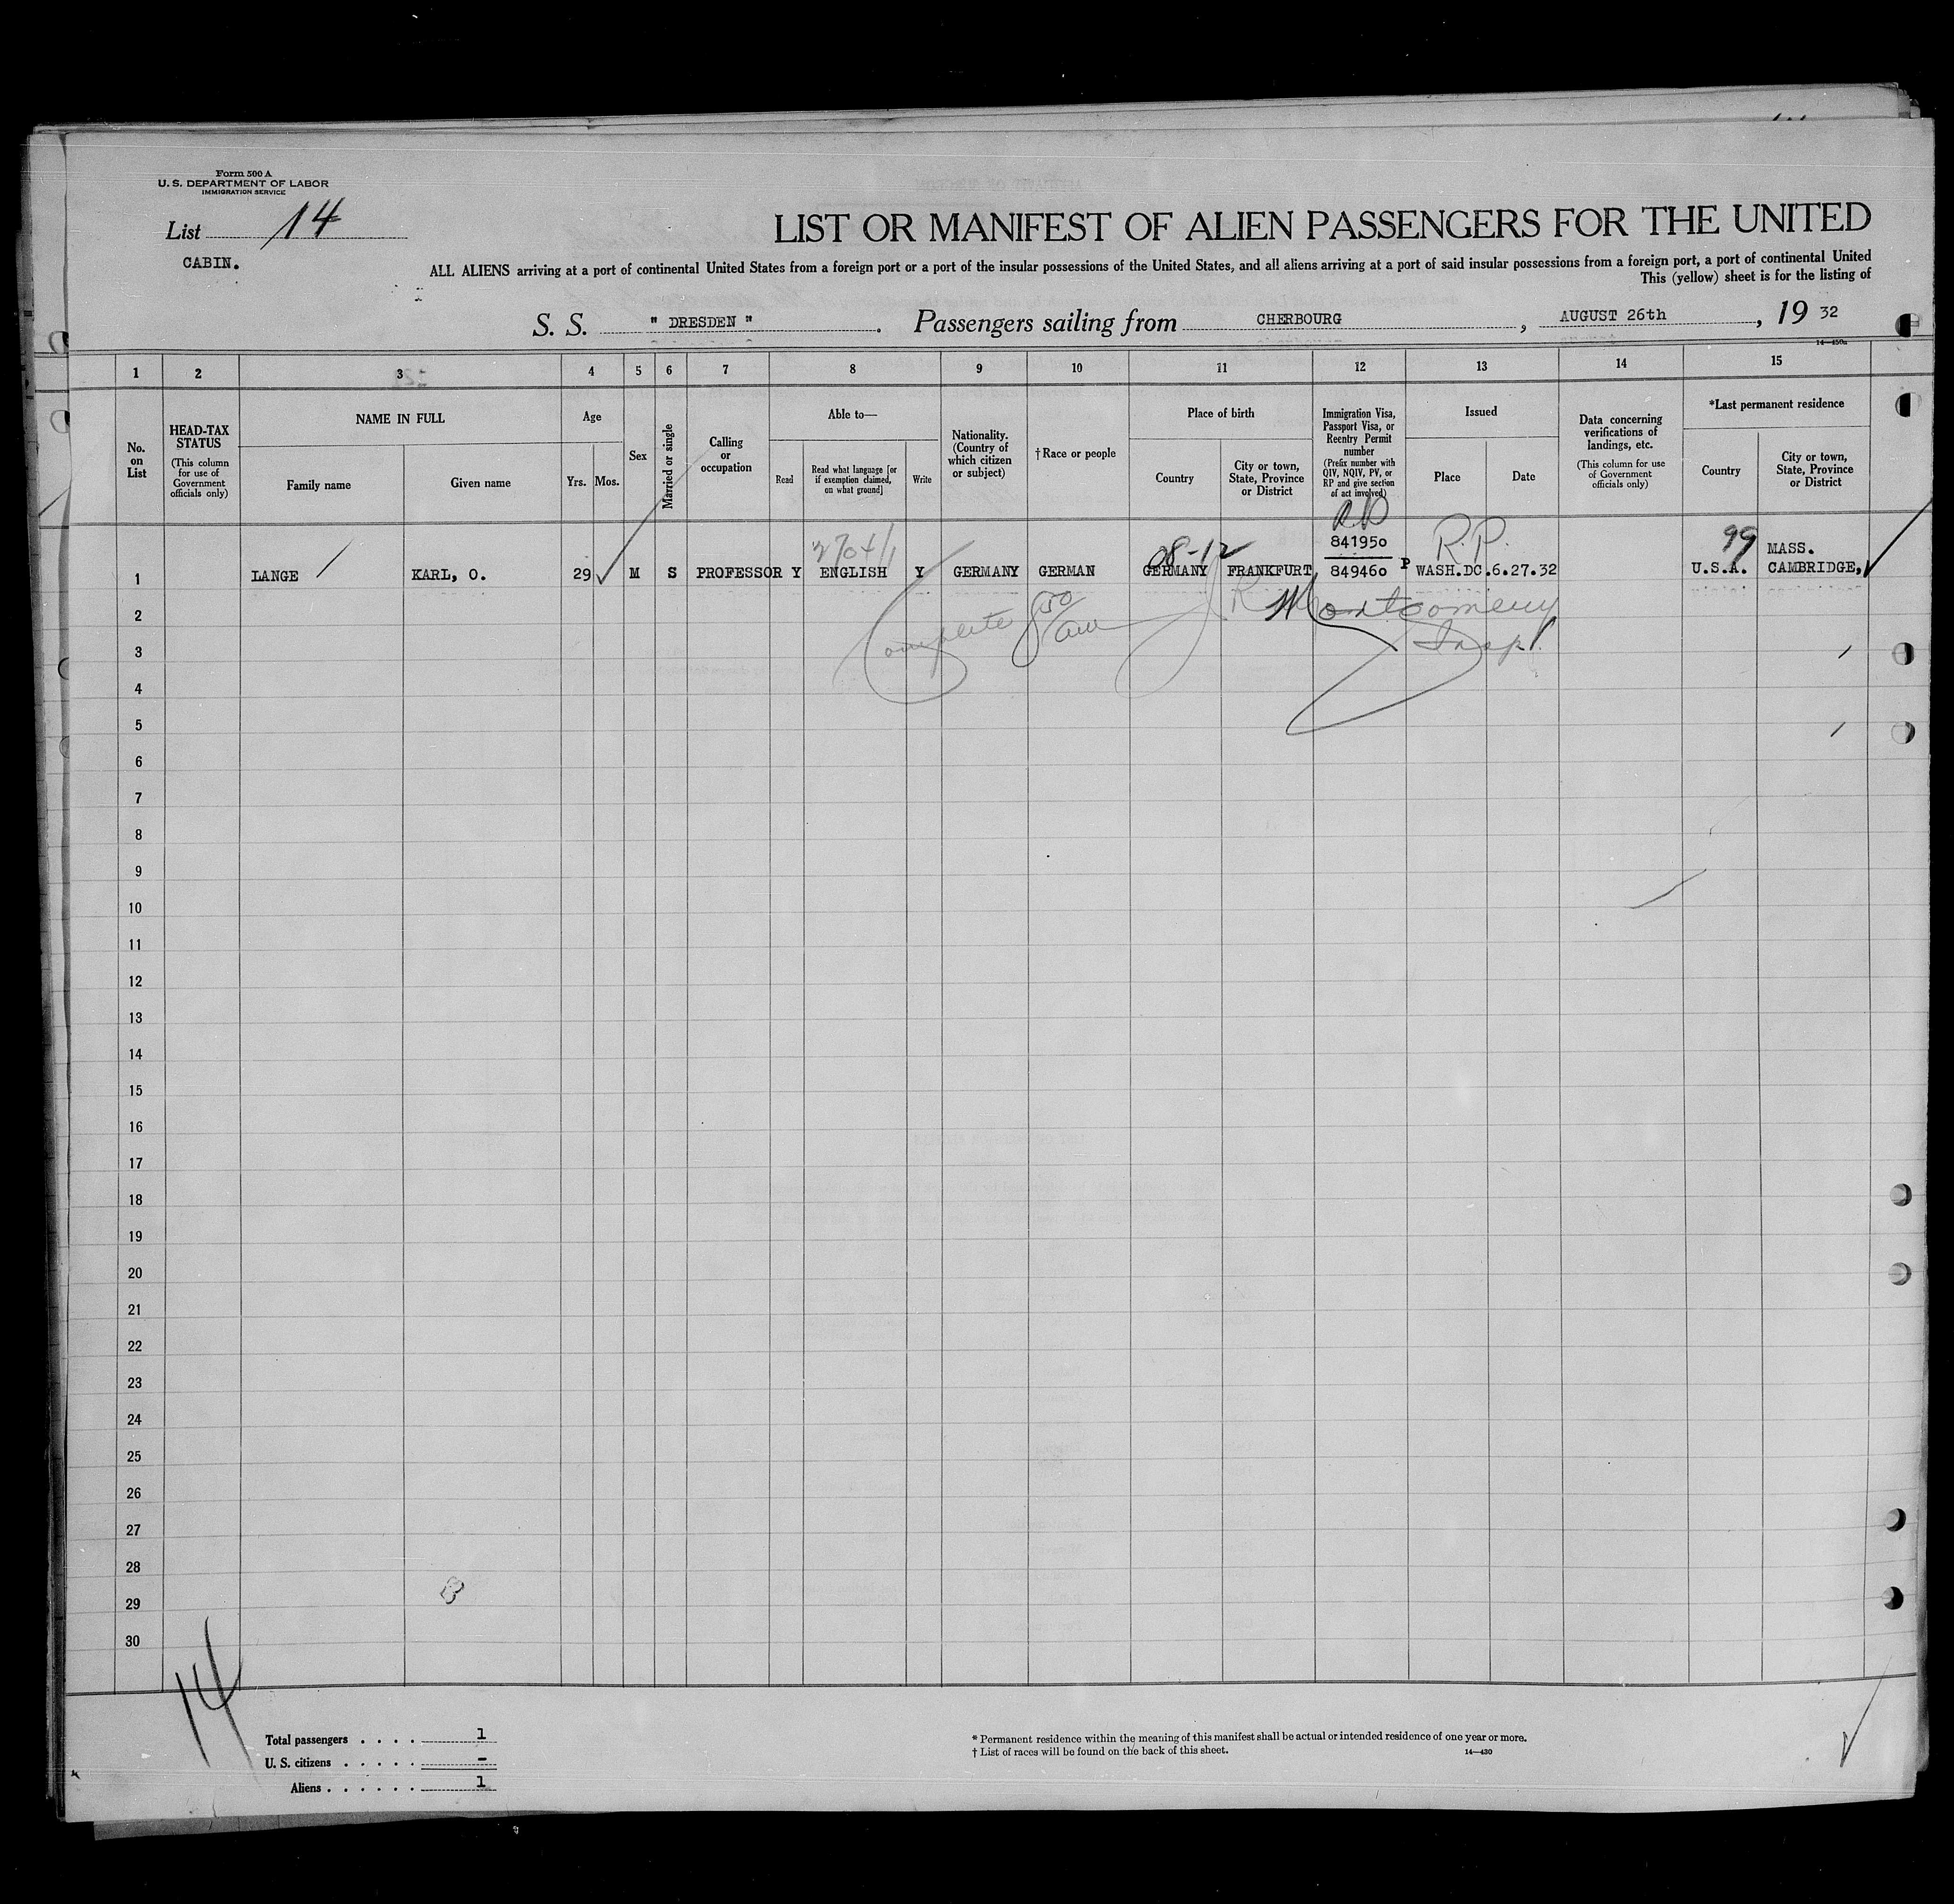 Form 500 A
U. S. DEPARTMENT OF LABOR
IMMIGRATION SERVICE
List 14
CABIN.
LIST OR MANIFEST OF ALIEN PASSENGERS FOR THE UNITED
ALL ALIENS arriving at a port of continental United States from a foreign port or a port of the insular possessions of the United States, and all aliens arriving at a port of said insular possessions from a foreign port, a port of continental United
This (yellow) sheet is for the listing of
S. S. " DRESDEN " . Passengers sailing from CHERBOURG , AUGUST 26th , 19 32
14—430a
1 2 3 4 5 6 7 8 9 10 11 12 13 14 15
No. on List
HEAD-TAX STATUS
(This column for use of Government officials only)
NAME IN FULL
Family name
Given name
Age
Yrs. Mos.
Sex
Married or single
Calling or occupation
Able to—
Read
Read what language [or if exemption claimed, on what ground]
Write
Nationality. (Country of which citizen or subject)
† Race or people
Place of birth
Country
City or town, State, Province or District
Immigration Visa, Passport Visa, or Reentry Permit number
(Prefix number with QIV, NQIV, PV, or RP and give section of act involved)
Issued
Place
Date
Data concerning verifications of landings, etc.
(This column for use of Government officials only)
*Last permanent residence
Country
City or town, State, Province or District
RP
841950 R.P. 99 MASS.
08-12
1 LANGE KARL, O. 29 M S PROFESSOR Y ENGLISH Y GERMANY GERMAN GERMANY FRANKFURT 849460 P WASH.DC.6.27.32 U.S.A. CAMBRIDGE,
2
Complete J R Montgomery
Inspt.
3
4
5
6
7
8
9
10
11
12
13
14
15
16
17
18
19
20
21
22
23
24
25
26
27
28
29
30
14
Total passengers . . . . 1
U. S. citizens . . . . . -
Aliens . . . . . . 1
* Permanent residence within the meaning of this manifest shall be actual or intended residence of one year or more.
† List of races will be found on the back of this sheet.
14—430